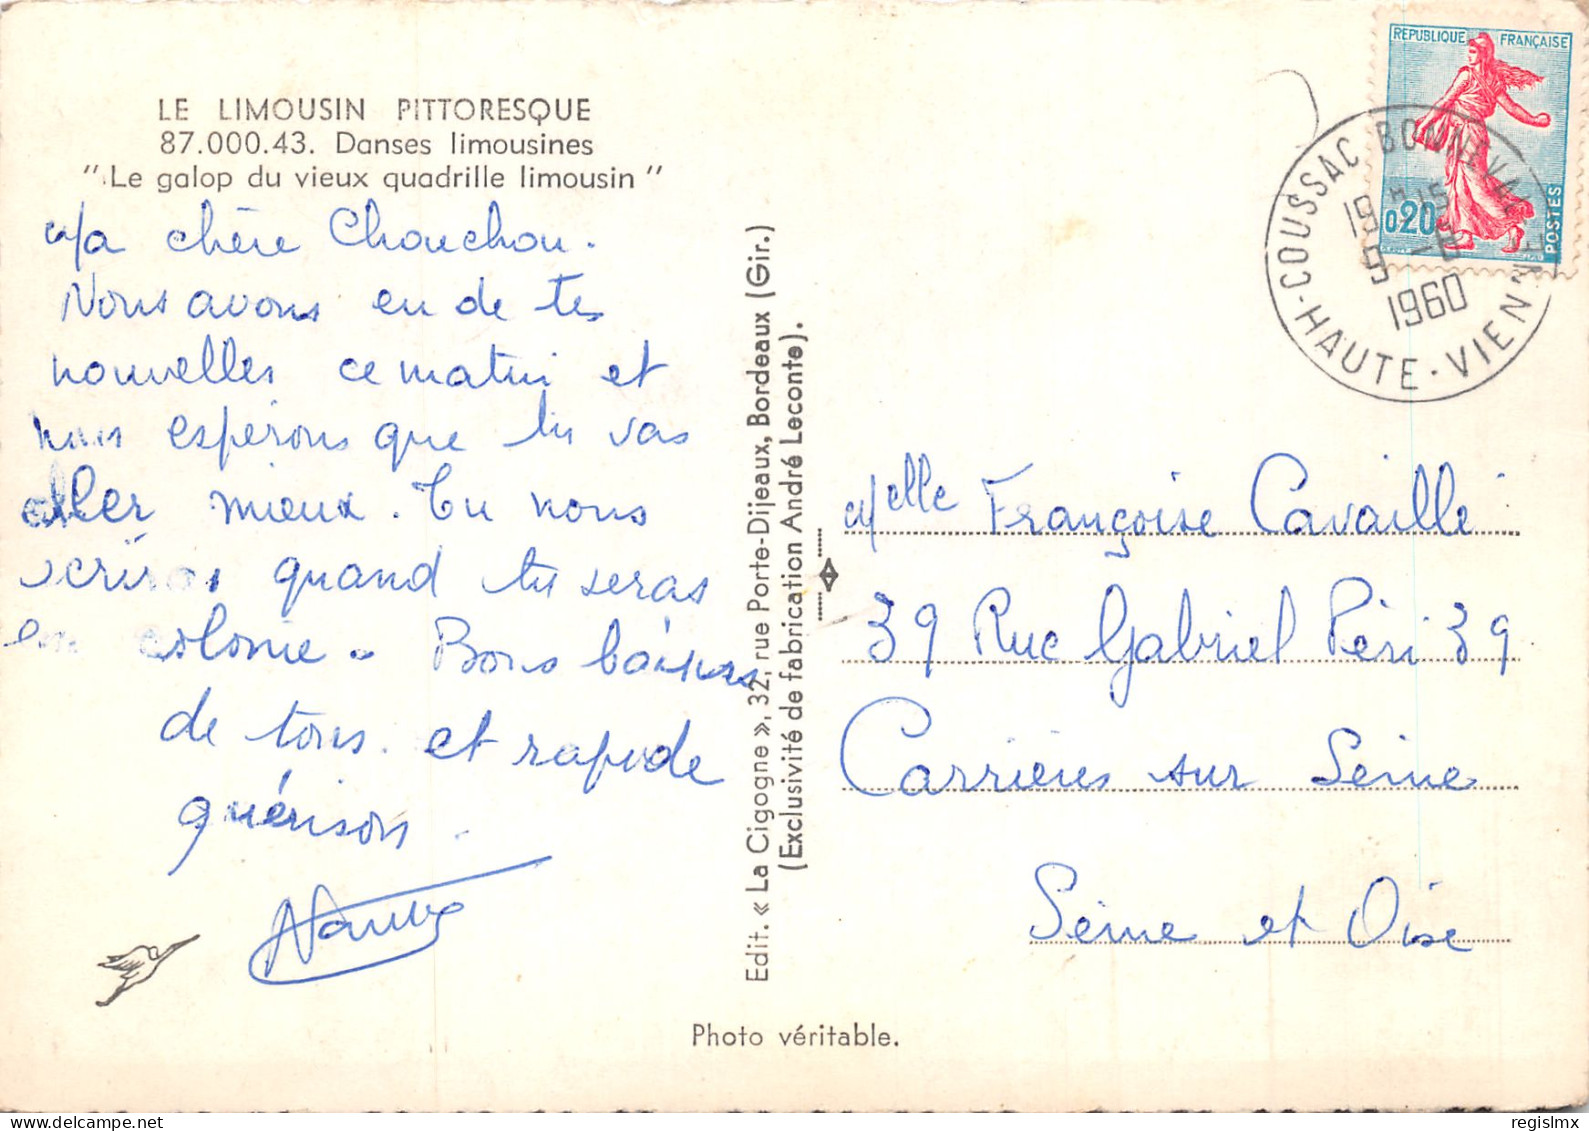 LE LIMOUSIN PITTORESQUE
87.000.43. Danses limousines
" Le galop du vieux quadrille limousin "
Ma chère Chouchou.
Nous avons eu de tes
nouvelles ce matin et
nous espérons que tu vas
aller mieux. Tu nous
écriras quand tu seras
en colonie. Bons baisers
de tous. et rapide
guérison.
Edit. « La Cigogne », 32, rue Porte-Dijeaux, Bordeaux (Gir.)
(Exclusivité de fabrication André Leconte).
Photo véritable.
REPUBLIQUE FRANÇAISE
0,20
POSTES
COUSSAC BONNEVAL
19 H 15
9 - 8
1960
HAUTE-VIENNE
Melle Françoise Cavaillé
39 Rue Gabriel Péri 39
Carrières sur Seine
Seine et Oise
regislmx